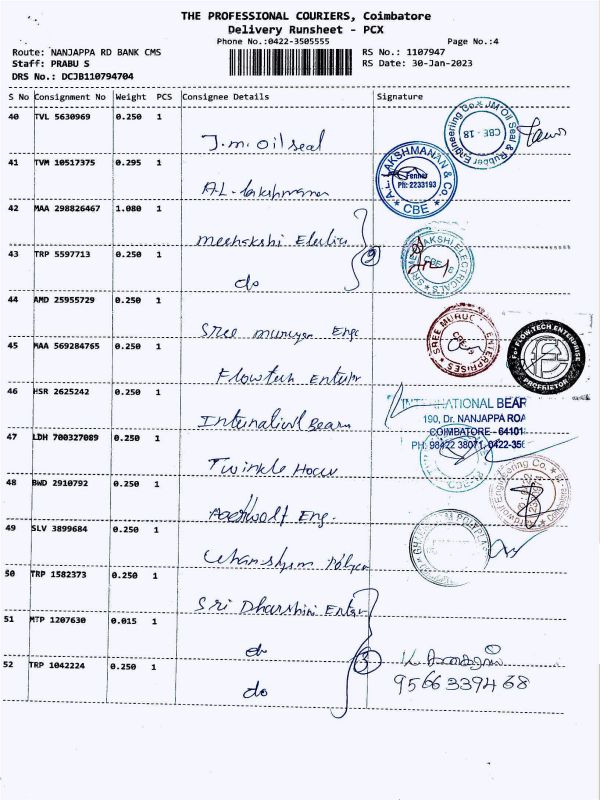 THE PROFESSIONAL COURIERS, Coimbatore
Delivery Runsheet - PCX
Phone No.:0422-3505555 Page No.:4
Route: NANJAPPA RD BANK CMS RS No.: 1107947
Staff: PRABU S RS Date: 30-Jan-2023
DRS No.: DCJB110794704
S No Consignment No Weight PCS Consignee Details Signature
40 TVL 5630969 0.250 1
J.m. Oil seal
JM Oil Seal & Rubber Engineering Co. CBE - 18
41 TVM 10517375 0.295 1
A.L. Lakshmanan
A.L. LAKSHMANAN & Co. Fenner Ph: 2233193 CBE
42 MAA 298826467 1.080 1
meenakshi Electrics
43 TRP 5597713 0.250 1
do
2
SRI MEENAKSHI ELECTRICALS CBE
44 AMD 25955729 0.250 1
Sree murugan Enge
SREE MURUG ENTERPRISES
45 MAA 569284765 0.250 1
Flowtech Enterpr
For FLOW.TECH.ENTERPRISE PROPRIETOR
46 HSR 2625242 0.250 1
International Bearn
INTERNATIONAL BEAR
190, Dr. NANJAPPA ROA
COIMBATORE - 64101
PH: 98422 38071, 0422-356
47 LDH 700327089 0.250 1
Twinkle Hour
48 BWD 2910792 0.250 1
Aardwolf Eng.
Aardwolf Engineering Co.
49 SLV 3899684 0.250 1
Ghanshyam Polyplas
GHANSHYAM POLYPLAS
50 TRP 1582373 0.250 1
Sri Dharshini Enter
51 MTP 1207630 0.015 1
do
52 TRP 1042224 0.250 1
do
3
9566339468